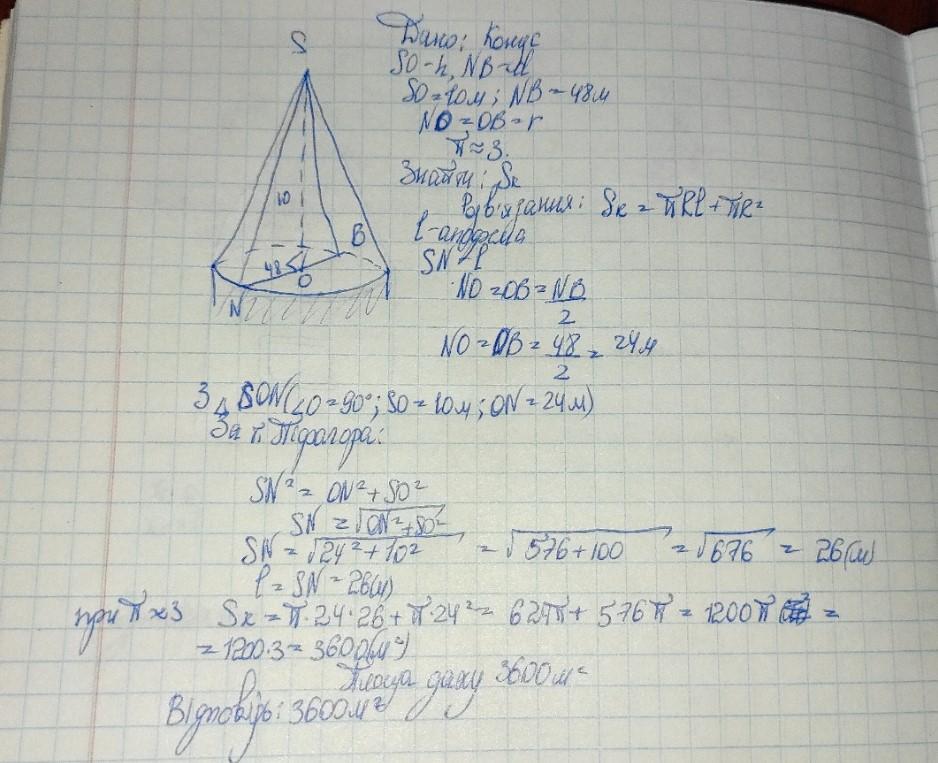 S
10
B
48
O
N
Дано: Конус
SO-h, NB=d
SO=10м; NB=48м
NO=OB=r
π≈3.
Знайти: Sк
Розв'язання: Sк = πRl+πR²
l-апофема
SN=l
NO=OB=NB/2
NO=OB=48/2=24м
З △SON(∠O=90°; SO=10м; ON=24м)
За т. Піфагора:
SN²=ON²+SO²
SN=√ON²+SO²
SN=√24²+10² =√576+100 =√676 = 26(м)
l=SN=26(м)
при π≈3 Sк=π·24·26+π·24²= 624π+576π=1200π =
=1200·3=3600(м²)
Площа даху 3600м²
Відповідь: 3600м²